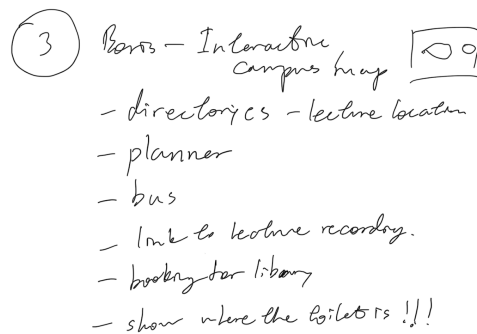 3 Boris – Interactive
campus map
– directoryes – lecture location
– planner
– bus
– link to lecture recording.
– booking for library
– show where the toilet is !!!